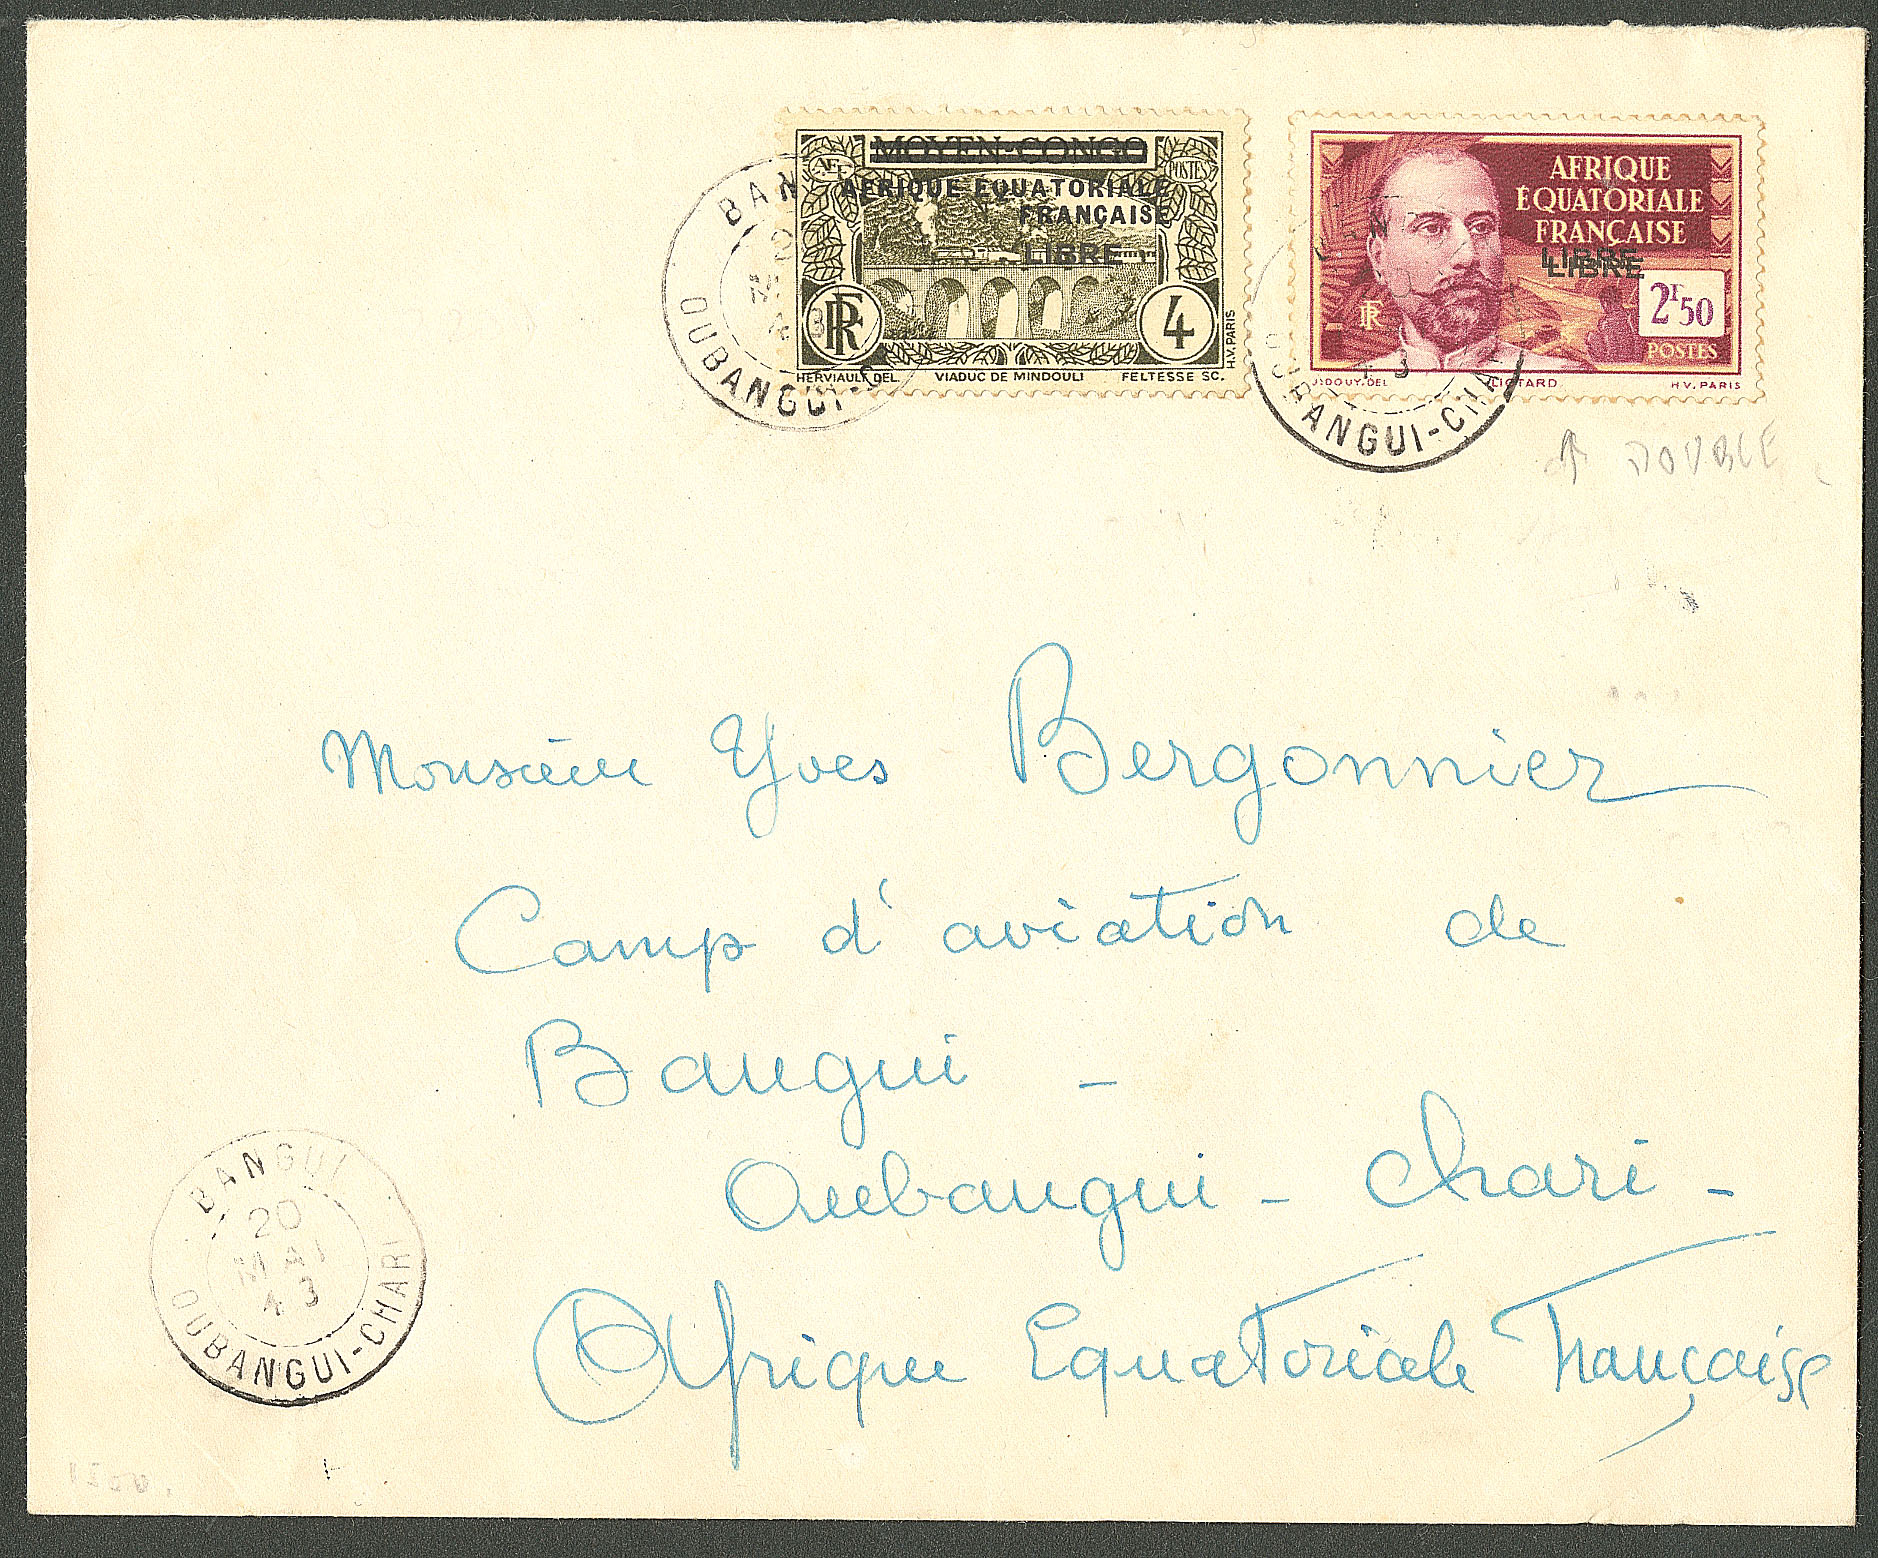 MOYEN-CONGO
AEF
POSTES
AFRIQUE ÉQUATORIALE
FRANÇAISE
LIBRE
RF
4
H.V. PARIS
HERVIAULT DEL
VIADUC DE MINDOULI
FELTESSE SC.
AFRIQUE
ÉQUATORIALE
FRANÇAISE
LIBRE
LIBRE
RF
2F50
POSTES
J. DOUY. DEL
LIOTARD
H.V. PARIS
OUBANGUI-CH
OUBANGUI-CHA
DOUBLE
Monsieur Yves Bergonnier
Camp d'aviation de
Bangui -
Oubangui - Chari -
Afrique Equatoriale Française
BANGUI
20
MAI
43
OUBANGUI-CHARI